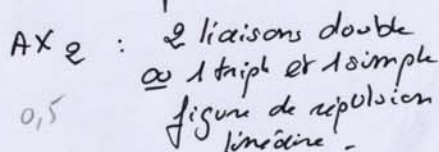 AX2 : 2 liaisons double
ou 1 triple et 1 simple
0,5
figure de répulsion
linéaire.